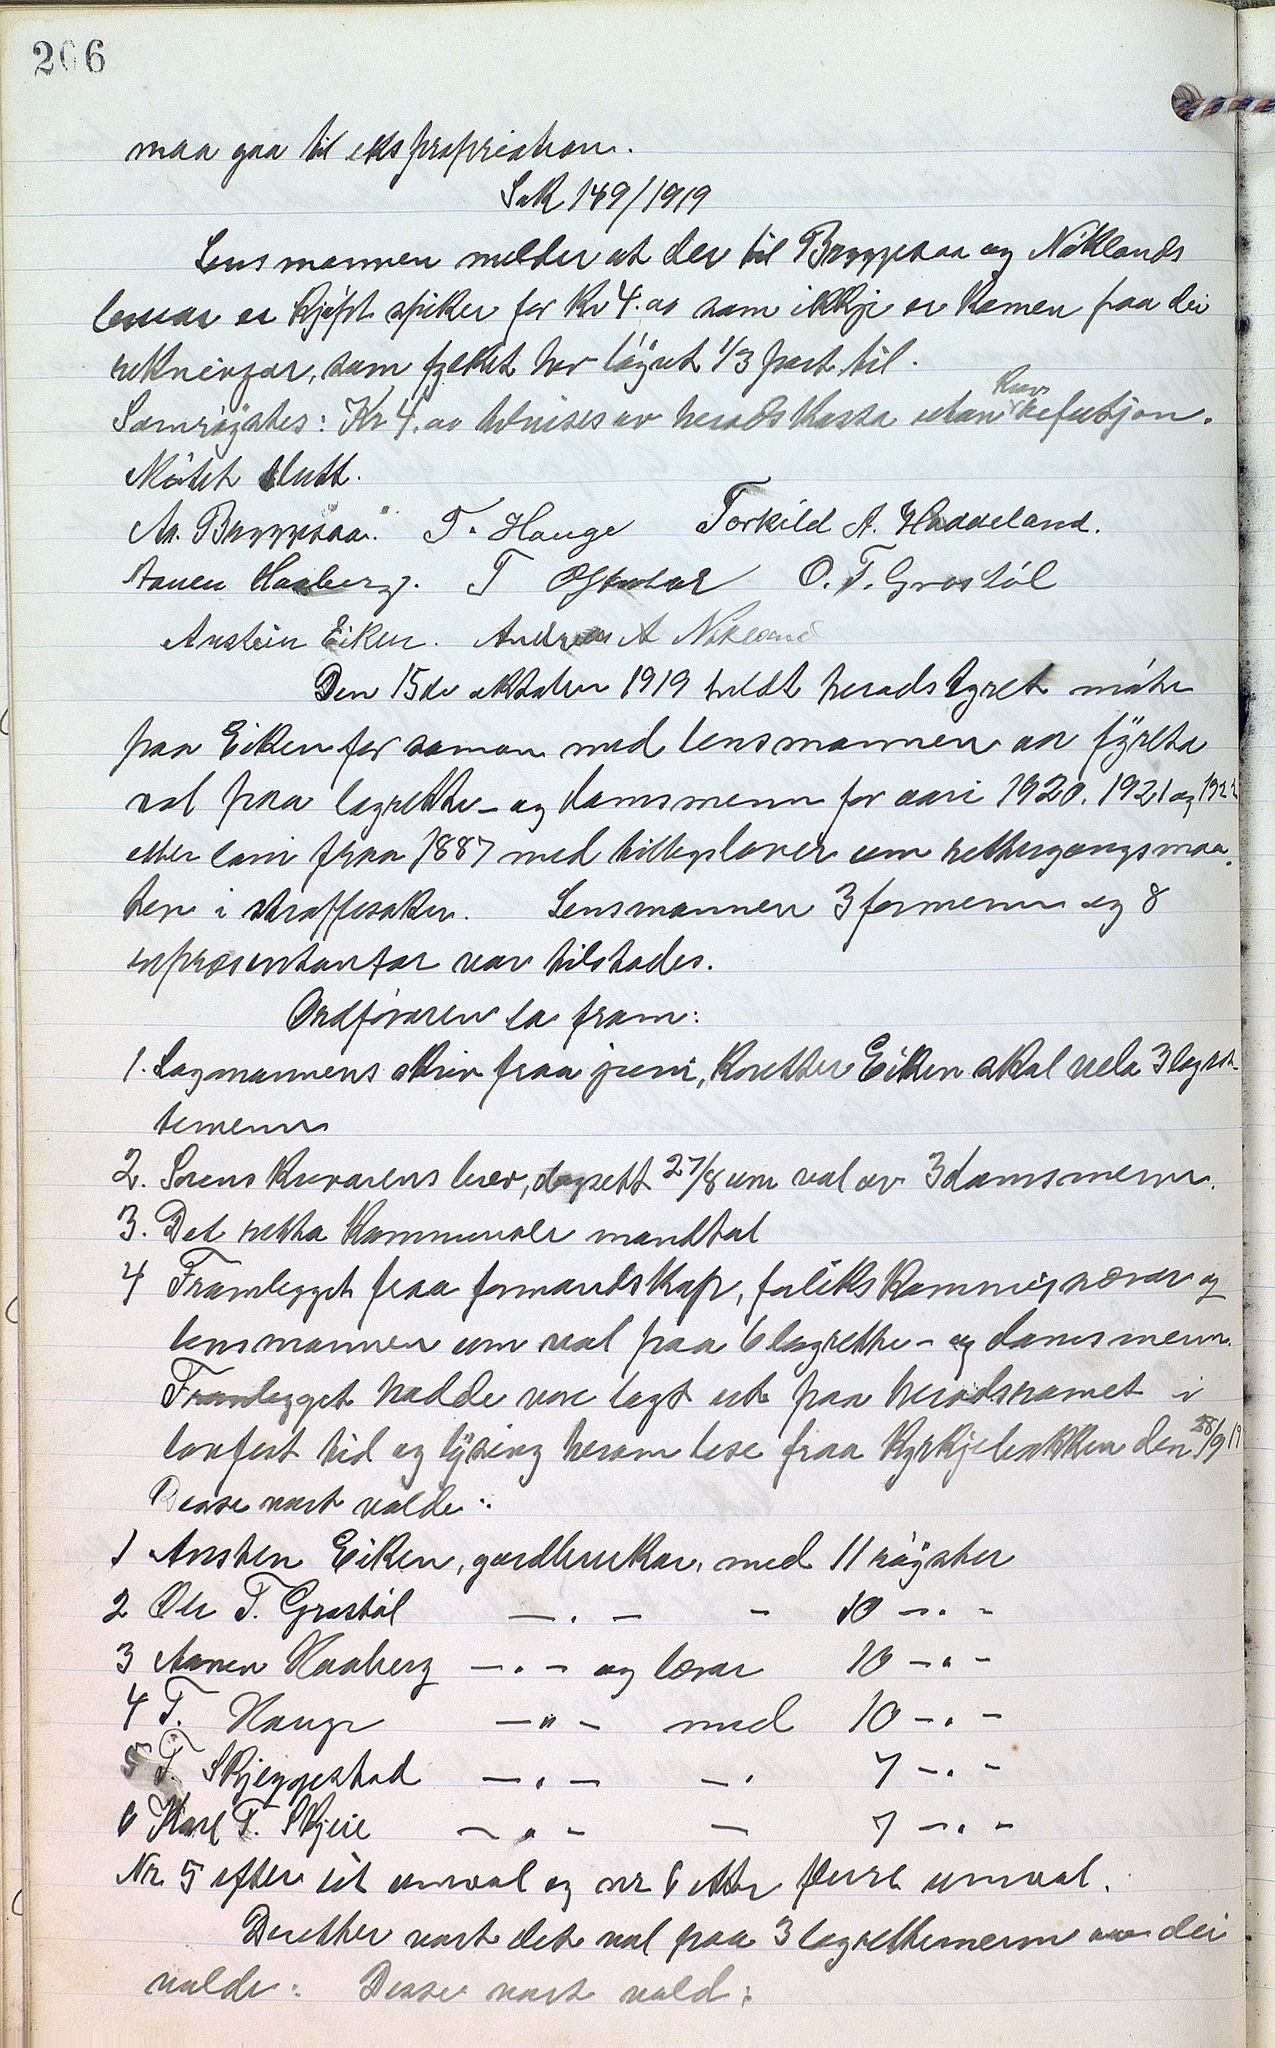 206
maa gaa til ekspropriation.
Sak 149/1919
Lensmannen melder at der til Bryggesaa og Nöklands
er kjöpt spiker for Kr 4.00 som ikkje er komen paa dei
rekningar, som fylket har löyvt 1/3 part til.
Samröystes: Kr 4.00 tilvises av heradskassa utan krav refusjon.
Mötet slutt.
Aa. Bryggesaa. T. Hauge Torkild A. Haddeland.
Aanen Haaberg. T O. T. Grostöl
Anstein Eiken. Andreas A Nökland
Den 15de oktober 1919 heldt heradstyret möte
paa Eiken for saman med lensmannen aa fyreta
val paa lagrette- og domsmenn for aari 1920, 1921 og 1922
etter lovi fraa 1887 med tilleggslover um rettergangsmaa-
ten i straffesaker. Lensmannen 3 formenn og 8
representantar var tilstades.
Ordföraren la fram:
1. Lagmannens skriv fraa juni, koretter Eiken skal velja 3 lagret-
temenn
2. Sorenskrivarens brev, dagsett 27/8 um val av 3 domsmenn.
3. Det retta kommunale manntal
4 Framlegget fraa formandskap, forlikskommisærar og
lensmannen um val paa 6 lagrette- og domsmenn.
Framlegget hadde vore lagt ut paa heradsromet i
lovfest tid og lysing herom lese fraa kyrkjebakken den 28/9 19
Desse vart valde:
1 Ansten Eiken, gardbrukar, med 11 röyster
2 Ole T. Grostöl —.— — 10 —.—
3 Aanen Haaberg —.— og lærar 10 —.—
4 T. Hauge —"— med 10 —.—
5 T. Skjeggestad —.— —. 7 —.—
6 Karl T. Skjeie —.— — 7 —.—
Nr. 5 efter eit umval og nr 6 etter fleire umval.
Deretter vart det val paa 3 lagrettemenn av dei
valde: Desse vart vald: